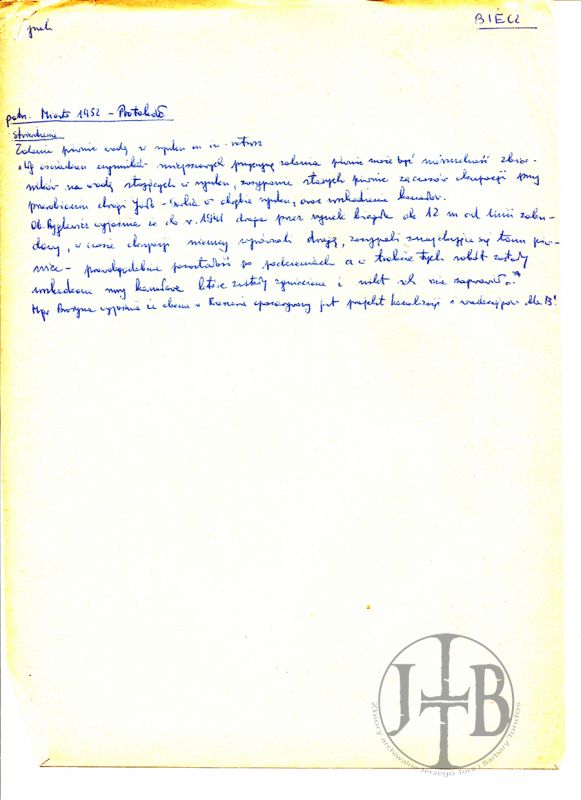 BIECZ
Miasto 1952 - Protokół
Stwierdzenie
Zalanie piwnic wodą w rynku m. in. ratusz
"Wg oświadczeń czynników miejscowych przyczyną zalania piwnic może być nieszczelność zbior-
ników na wodę stojących w rynku, zasypanie starych piwnic za czasów okupacji przy
przerabianiu drogi Jasło - w obrębie rynku, oraz uszkodzenie kanałów.
Ob. wyjaśnia że do r. 1941 droga przez rynek biegła ok 12 m od linii zabu-
dowy, w czasie okupacji niemcy wyrównali drogę, zasypali znajdujące się tam piw-
nice - prawdopodobnie pozostałość po podcieniach a w trakcie tych robót zostały
uszkodzone rury kanałowe które zostały i nikt ich nie naprawił."
Mgr wyjaśnia że obecnie w opracowywany jest projekt kanalizacji i wodociągów dla B.
JTB
Zbiory archiwalne Jerzego Tura i Barbary Tondos